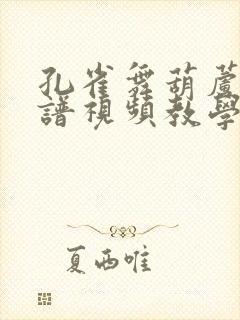 孔雀舞葫蘆
譜視頻教學
夏西唯